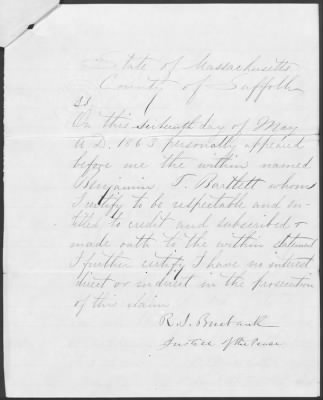 State of Massachusetts
County of Suffolk
S.S.
On this sixteenth day of May
A.D. 1863 personally appeared
before me the within named
Benjamin T. Bartlett whom
I certify to be respectable and en-
titled to credit and subscribed &
made oath to the within statement
I further certify I have no interest
direct or indirect in the prosecution
of this claim
R. I. Burbank
Justice of the Peace